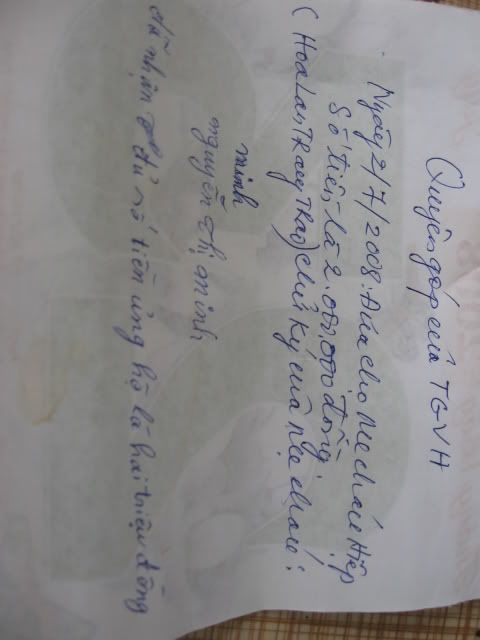 Quyên góp của TGVH
Ngày 2/7/2008: Đưa cho mẹ cháu Hiệp
Số tiền là 2.000.000 đồng.
(HoaLanTRangTRao) chữ ký của mẹ cháu:
minh
nguyễn thị minh
đã nhận đủ số tiền ủng hộ là hai triệu đồng